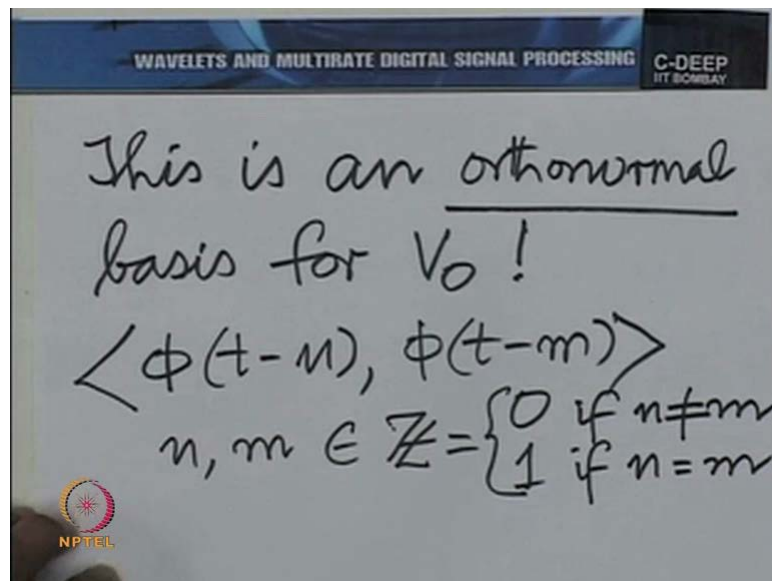 WAVELETS AND MULTIRATE DIGITAL SIGNAL PROCESSING
C-DEEP
IIT BOMBAY
This is an orthonormal
basis for V₀ !
⟨ϕ(t-n), ϕ(t-m)⟩
n, m ∈ ℤ = {0 if n≠m
1 if n=m
NPTEL